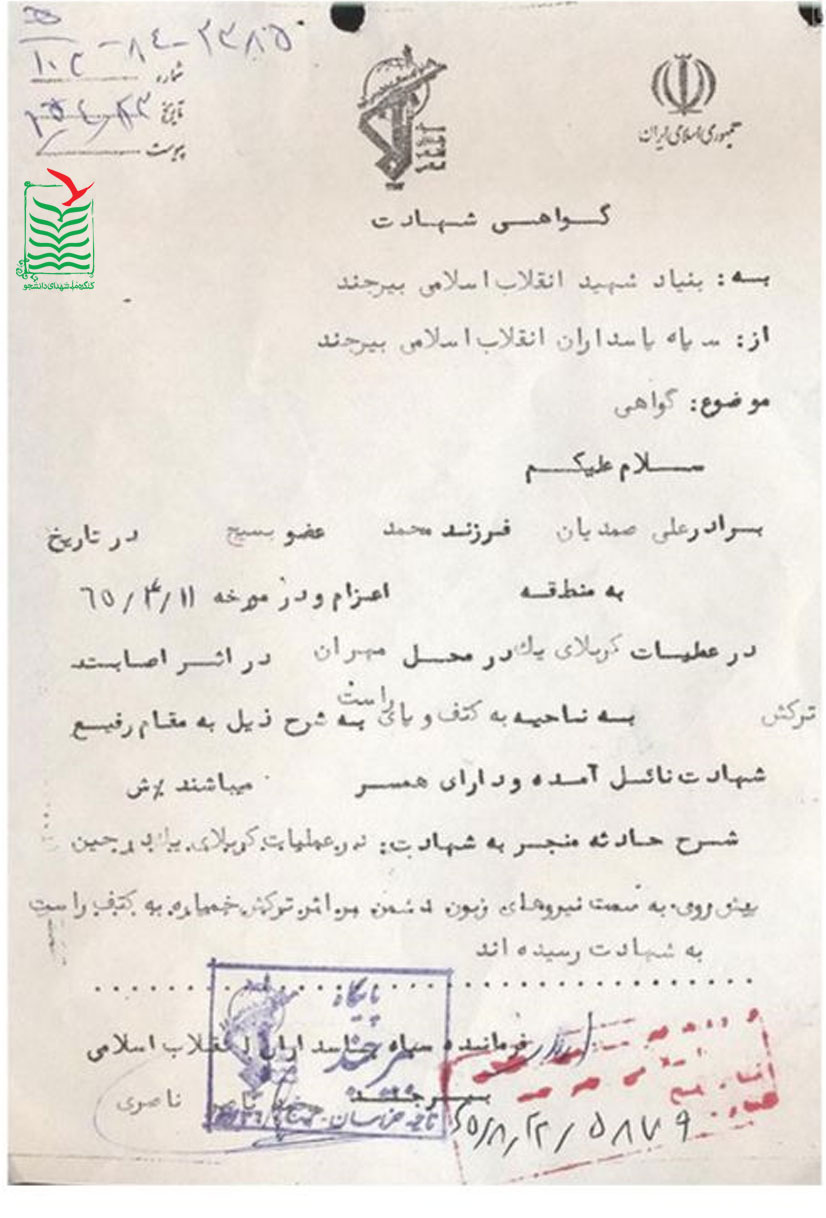 ۱۰۲-۸۴-۲۳۸۵
شماره
تاریخ
پیوست
جمهوری اسلامی ایران
کنگره ملی شهدای دانشجو
گواهی شهادت
به: بنیاد شهید انقلاب اسلامی بیرجند
از: سپاه پاسداران انقلاب اسلامی بیرجند
موضوع: گواهی
سلام علیکم
برادر علی صمدیان فرزند محمد عضو بسیج در تاریخ
به منطقه اعزام و در مورخه ۶۵/۴/۱۱
در عملیات کربلای یک در محل مهران در اثر اصابت
ترکش به ناحیه به کتف و پای راست به شرح ذیل به مقام رفیع
شهادت نائل آمده و دارای همسر میباشند
شرح حادثه منجر به شهادت: در عملیات کربلای یک در حین
پیش روی به سمت نیروهای زبون دشمن بر اثر ترکش خمپاره به کتف راست
به شهادت رسیده اند
فرمانده سپاه پاسداران انقلاب اسلامی
بیرجند
ناصری
پایگاه
بیرجند
ناحیه خراسان
۶۵/۸/۲۲/۵۸۷۹